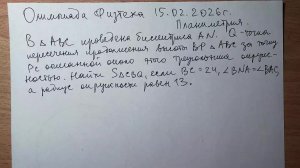 Олимпиада Физтеха 15.02.2026г.
Планиметрия.
В △ABC проведена биссектриса AN. Q-точка
пересечения продолжения высоты BP △ABC за точку
P с описанной около этого треугольника окруж-
ностью. Найти S△CBQ, если BC=24, ∠BNA=∠BAC,
а радиус окружности равен 13.